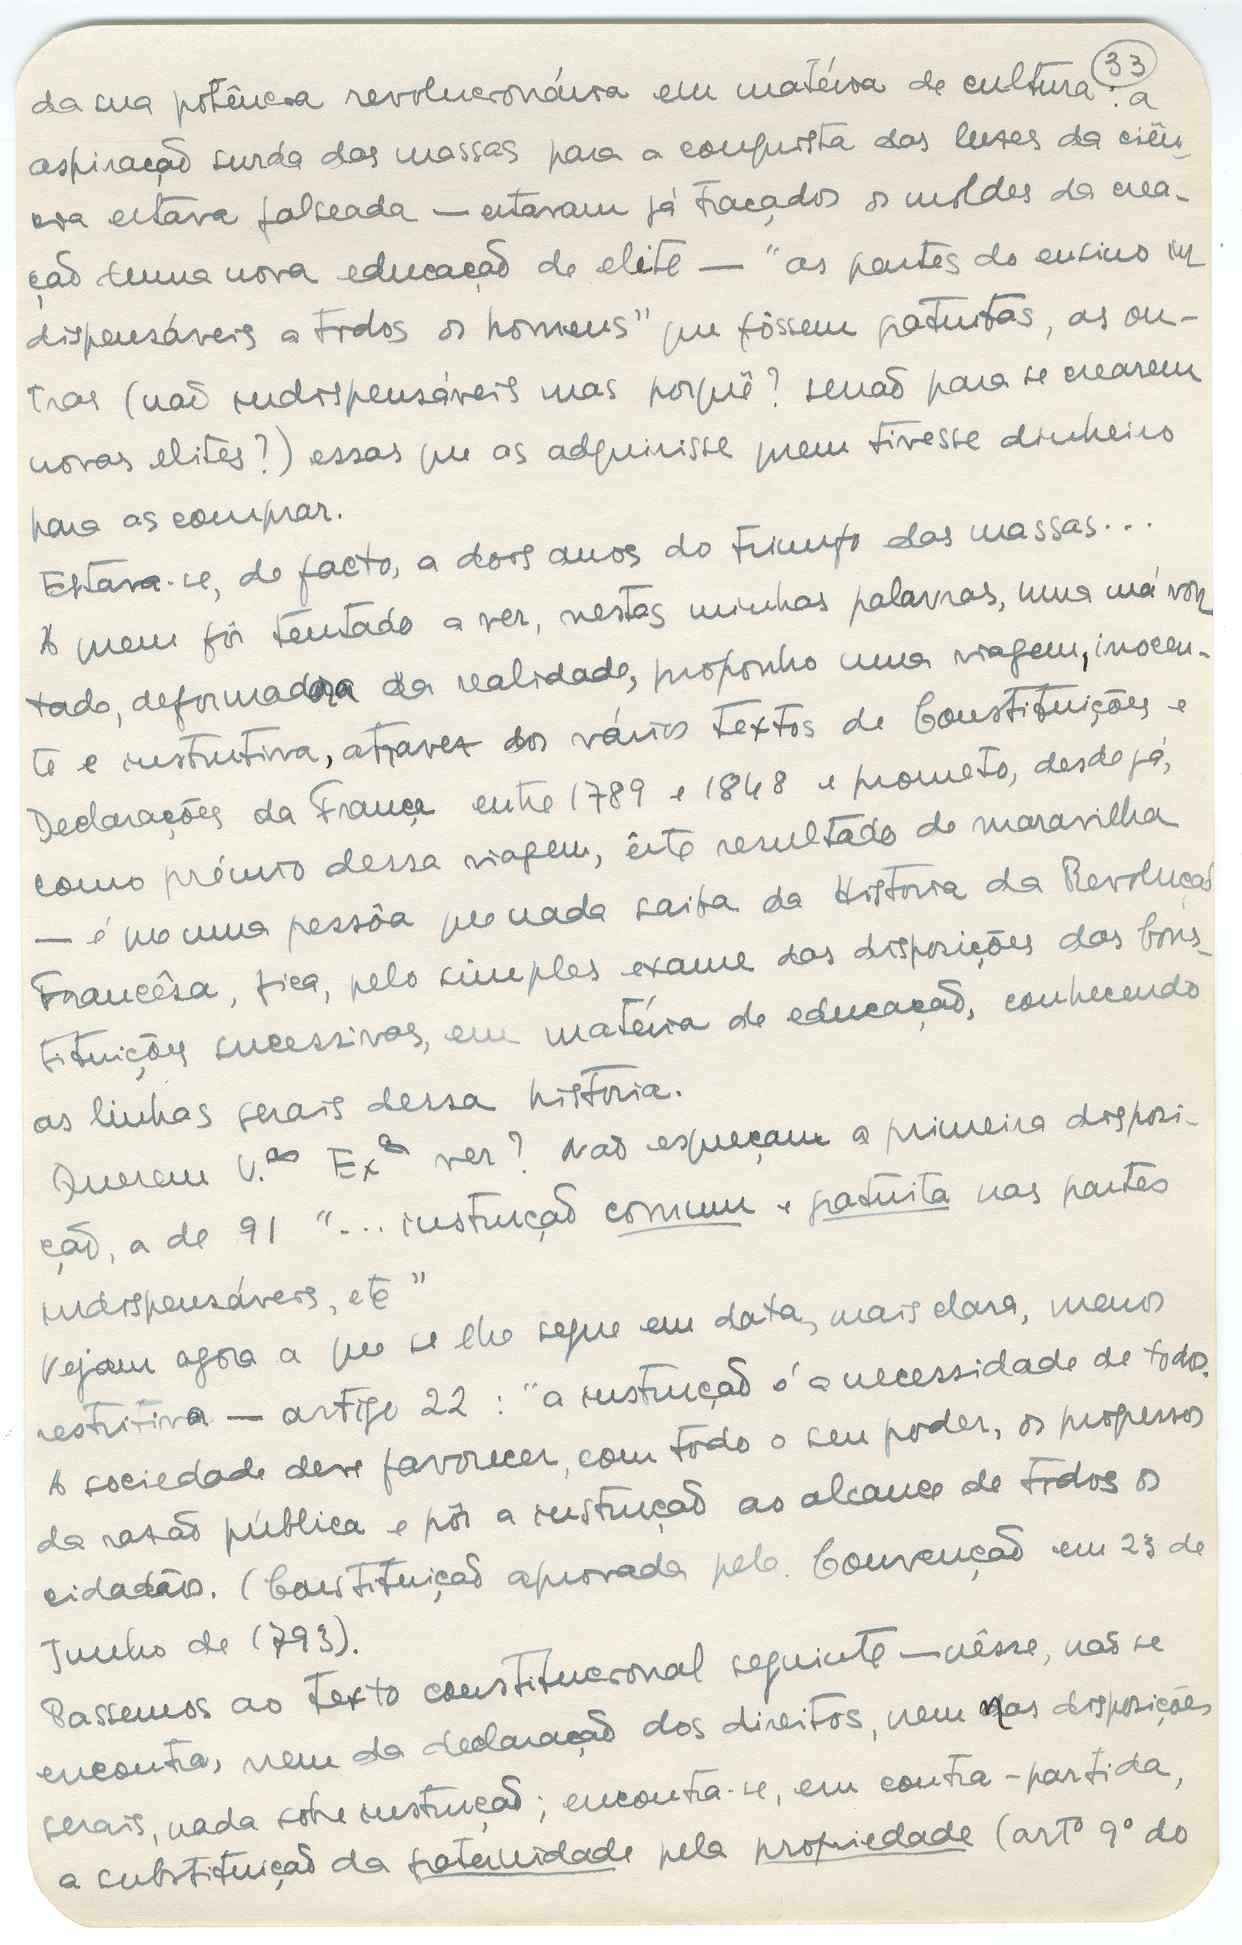 33
da sua potência revolucionária em matéria de cultura: a
aspiração surda das massas para a conquista das luzes da ciên-
cia estava falseada — estavam já traçados os moldes da crea-
ção duma nova educação de elite — "as partes do ensino in
dispensáveis a todos os homens" que fôssem gratuitas, as ou-
tras (não indispensáveis mas porquê? senão para se crearem
novas elites?) essas que as adquirisse quem tivesse dinheiro
para as comprar.
Estava-se, de facto, a dois anos do triunfo das massas...
A quem fôr tentado a ver, nestas minhas palavras, uma má von
tade, deformadora da realidade, proponho uma viagem, inocen-
te e instrutiva, atravez dos vários textos de Constituições e
Declarações da França entre 1789 e 1848 e prometo, desde já,
como prémio dessa viagem, êste resultado de maravilha
— é que uma pessôa que nada saiba da História da Revolução
Francêsa, fica, pelo simples exame das disposições das Cons-
tituições sucessivas, em matéria de educação, conhecendo
as linhas gerais dessa história.
Querem V.as Exas ver? Não esqueçam a primeira disposi-
ção, a de 91 "... instrução comum e gratuita nas partes
indispensáveis, etc"
Vejam agora a que se lhe segue em data, mais clara, menos
restritiva — artigo 22: "a instrução é a necessidade de todos.
A sociedade deve favorecer, com todo o seu poder, os progressos
da razão pública e pôr a instrução ao alcance de todos os
cidadãos. (Constituição aprovada pela Convenção em 23 de
Junho de 1793).
Passemos ao texto constitucional seguinte — nêsse, não se
encontra, nem da declaração dos direitos, nem nas disposições
gerais, nada sobre instrução; encontra-se, em contra-partida,
a substituição da fraternidade pela propriedade (artº 9º do